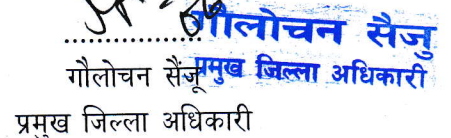 गौलोचन सैजु
प्रमुख जिल्ला अधिकारी
गौलोचन सैंजू
प्रमुख जिल्ला अधिकारी